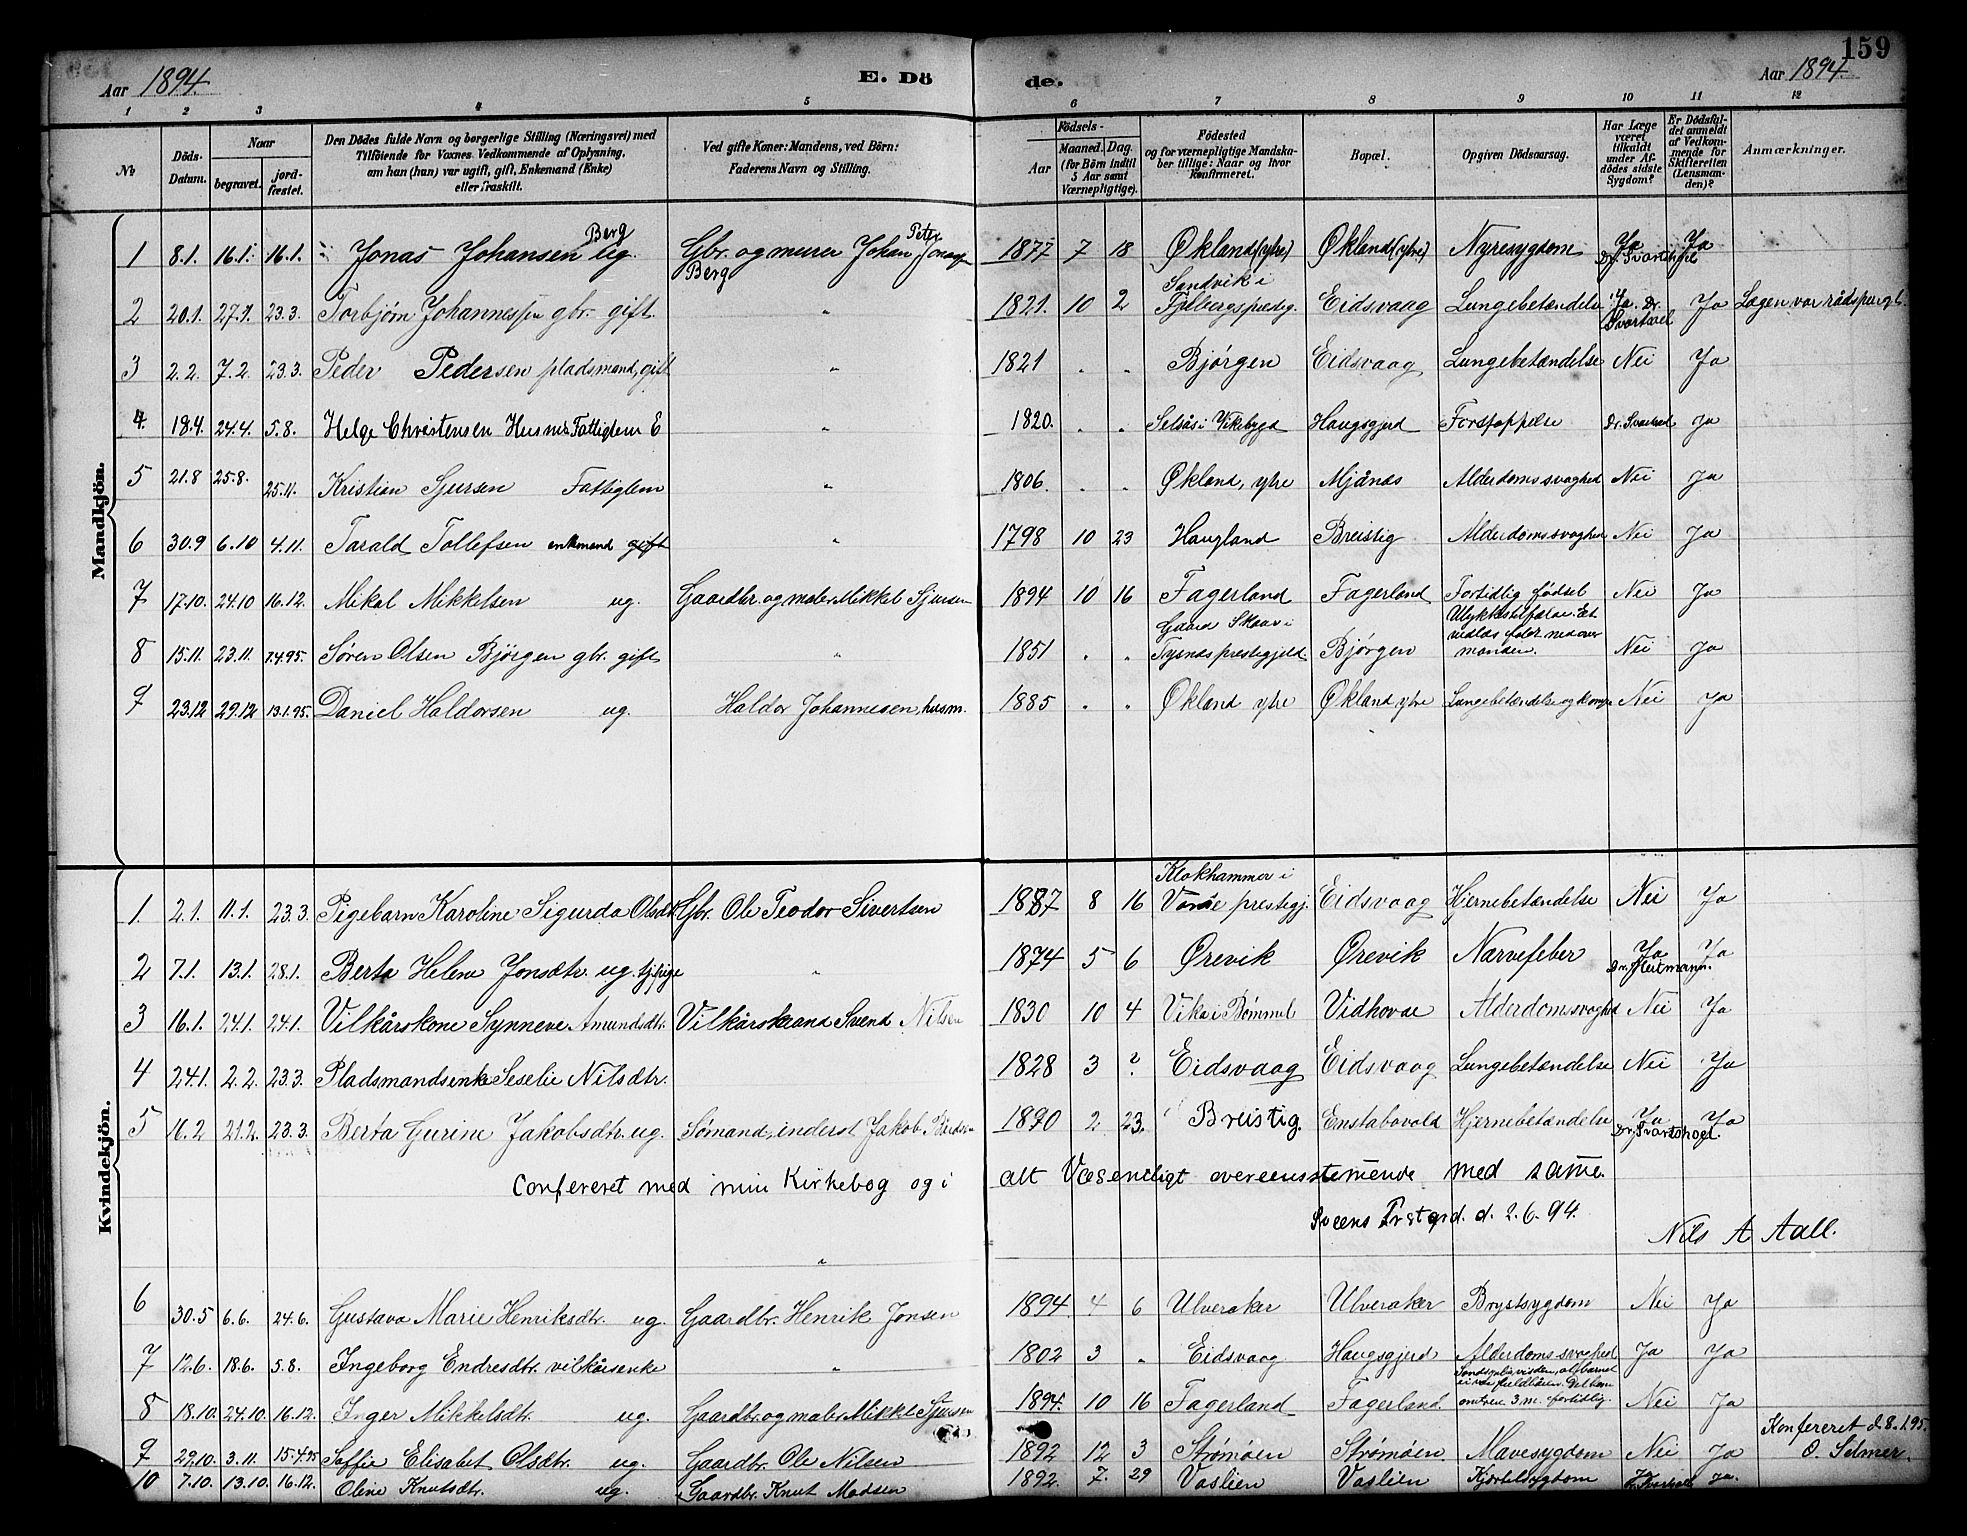 159
Aar 1894. E. Döde. Aar 1894.
1 2 3 4 5 6 7 8 9 10 11 12
No
Döds-Datum.
Naar
begravet.
jordfæstet.
Den Dödes fulde Navn og borgerlige Stilling (Næringsvei) med
Tilföiende for Voxnes Vedkommende af Oplysning,
om han (hun) var ugift, gift, Enkemand (Enke)
eller fraskilt.
Ved gifte Koner: Mandens, ved Börn:
Faderens Navn og Stilling.
Födsels-
Aar
Maaned. Dag.
(for Börn indtil
5 Aar samt
Værnepligtige).
Födested
og for værnepligtige Mandskaber tillige: Naar og hvor
konfirmeret.
Bopæl.
Opgiven Dödsaarsag.
Har Læge
været
tilkaldt
under Afdödes sidste
Sygdom?
Er Dödsfaldet anmeldt
af Vedkommende for
Skifteretten
(Lensmanden)?
Anmærkninger.
Mandkjön.
1 8.1. 16.1. 16.1. Jonas Johansen Berg ug. Gbr. og murer Johan Peter Jonassen Berg 1877 7 18 Økland (ytre) Økland (ytre) Nyresygdom Ja Dr. Svartshol Ja
2 20.1. 27.1. 23.3. Torbjørn Johannessen gbr. gift. " 1821. 10 2 Sandvik i Fjelbergs prestg. Eidsvaag Lungebetændelse Ja. Dr. Ja Lægen var rådspurgt.
3 2.2. 7.2. 23.3. Peder Pedersen pladsmand, gift " 1821 " " Bjørgen Eidsvaag Lungebetændelse Nei Ja
4. 18.4. 24.4. 5.8. Helge Christensen Husnes Fattiglem E " 1820. " " Selsås i Vikebygd Haugsgjerd Forstoppelse Ja
5 21.8 25.8. 25.11. Kristian Sjursen Fattiglem " 1806. " " Økland, ytre Mjånes Alderdomssvaghed Nei Ja
6 30.9 6.10 4.11. Tarald Tollefsen enkmand gift " 1798 10 23 Haugland Breistig Alderdomssvaghed Nei Ja
7 17.10. 24.10 16.12. Mikal Mikkelsen ug. Gaardbr. og maler Mikkel Sjursen 1894 10 16 Fagerland Fagerland Fortidlig fødsel Nei Ja
8 15.11. 23.11. 7.4.95. Søren Olsen Bjørgen gbr. gift " 1851 " " Gaard Skaar i Tysnæs prestegjeld. Bjørgen Ulykkestilfælde. Et vedlas faldt ned over manden. Nei Ja
9 23.12 29.12 13.1.95. Daniel Haldorsen ug. Haldor Johannesen, husm. 1885 " " Økland ytre Økland ytre Lungebetændelse og Nei Ja
Kvindekjön.
1 2.1. 11.1. 23.3. Pigebarn Karoline Sigurda Olsdtr. Gbr. Ole Teodor Sivertsen 1887 8 16 Klokhammer i prestegj. Eidsvaag Hjernebetændelse Nei Ja
2 7.1. 13.1. 28.1. Berta Helene Jonsdtr. ug. tj.pige " 1874 5 6 Ørevik Ørevik Nervefeber Ja Dr. Heitmann. Ja
3 16.1. 24.1. 24.1. Vilkårskone Synneve Amundsdtr. Vilkårsmand Svend Nilsen 1830 10 4 Vika i Bømmel Vidhovde Alderdomssvaghed Nei Ja
4 24.1. 2.2. 23.3. Pladsmandsenke Seselie Nilsdtr. 1828 3 ? Eidsvaag Eidsvaag Lungebetændelse Nei Ja
5 16.2 21.2. 23.3. Berta Gurine Jakobsdtr. ug. Sømand, inderst Jakob 1890 2 23. Breistig. Emstabovold Hjernebetændelse Ja Ja
Confereret med min Kirkebog og i alt Væsentligt overeensstemende med same.
Sveens Prstgrd. d. 2.6.94.
Nils A Aall.
"
6 30.5 6.6. 24.6. Gustava Marie Henriksdtr. ug. Gaardbr. Henrik Jonsen 1894. 4 6 Ulveraker Ulveraker Brystsygdom Nei Ja
7 12.6. 18.6. 5.8. Ingeborg Endresdtr. vilkårsenke " 1802 3 " Eidsvaag Haugsgjerd Alderdomssvaghed Ja Ja
8 18.10. 24.10. 16.12. Inger Mikkelsdtr. ug. Gaardbr. og maler Mikkel Sjursen 1894. 10 16 Fagerland Fagerland 3 m. fortidlig. Nei Ja
9 29.10. 3.11. 15.4.95 Soffie Elisabet Olsdtr. ug. Gaardbr. Ole Nilsen 1892 12 3 Strømøen Strømøen. Mavesygdom Nei Ja Konfereret d. 8.1.95. O. Selmer.
10 7.10. 13.10. 16.12. Oline Knutsdtr. ug. Gaardbr. Knut Madsen 1892. 7. 29 Vaslien Vaslien Kjertelsygdom Ja Ja.